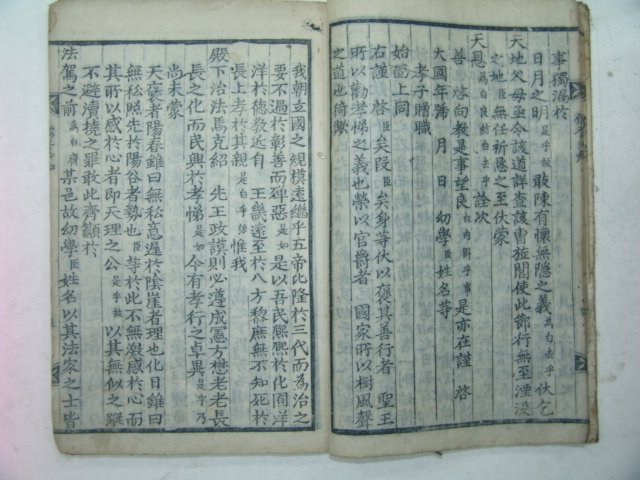 事獨湮於
日月之明是乎故敢陳有懷無隱之義為白去乎伏乞
天地父母亟令該道詳查該曹旌閭使此卓行無至湮沒
之地臣無任祈恳之至伏蒙
天恩為白良結望白去乎詮次
善啓向教是事望良白內臥乎事是亦在謹啓
大國年號 月 日 幼學臣姓名等
孝子贈職
始面上同
右謹啓臣矣段臣矣身等伏以褒其善行者 聖王
所以勸孝悌之義也榮以官爵者 國家所以樹風聲
之道也猗歟
我朝立國之規模遠繼乎五帝比隆於三代而為治之
要不過於彰善而癉惡是如是以吾民熙熙於化囿洋
洋於德教近自 王畿遠至於八方黎庶無不知死於
長上孝於其親是白乎所惟我
殿下治法馬克紹 先王政謨則必遵成憲方懋老老長
長之化而民興於孝悌是如今有孝行之卓異是乎乃
尚未蒙
天褒者陽春雖曰無私恵遲於陰崖者理也化日雖曰
無私照先於陽谷者勢也臣等於此不無激感於心而
其所以感於心者即天理之公是乎故以其無似之蹤
不避瀆撓之罪敢此齊籲於
法駕之前為白齊某邑故幼學臣姓名以其法家之士皆